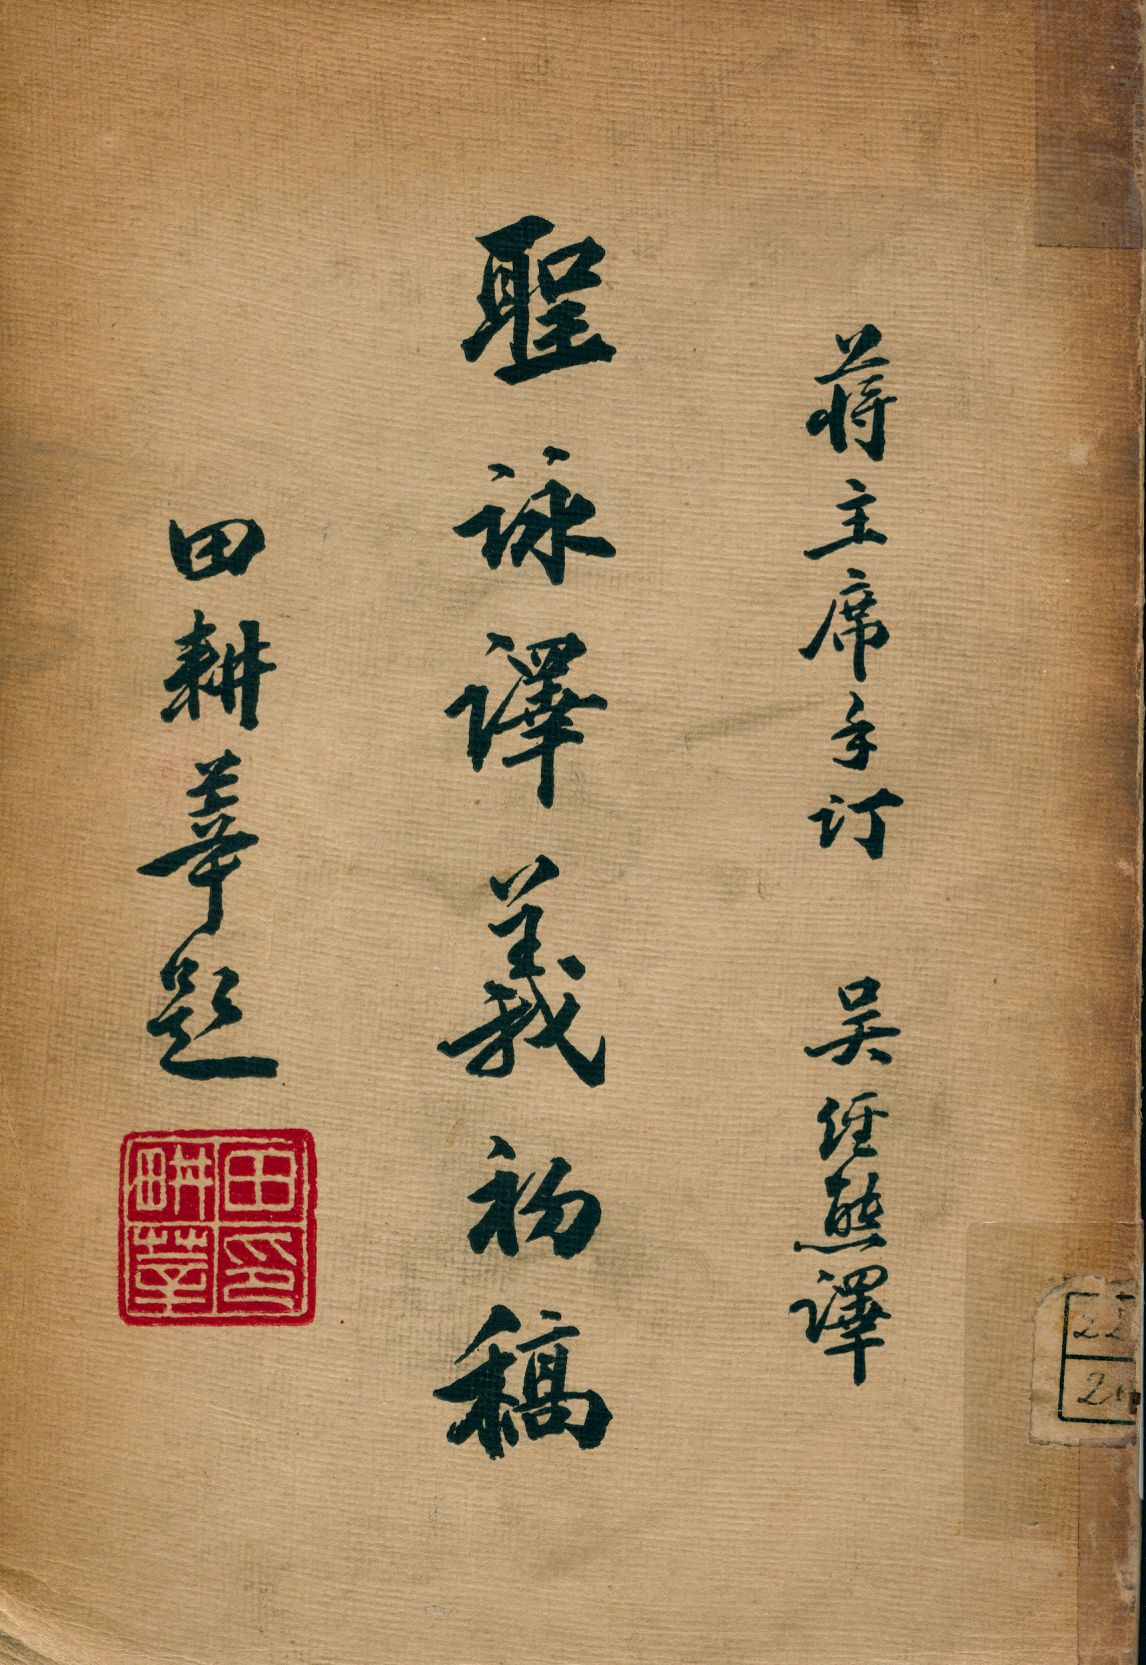 蔣主席手订 吴经熊譯
聖詠譯義初稿
田耕莘題
田印
耕莘
22
2